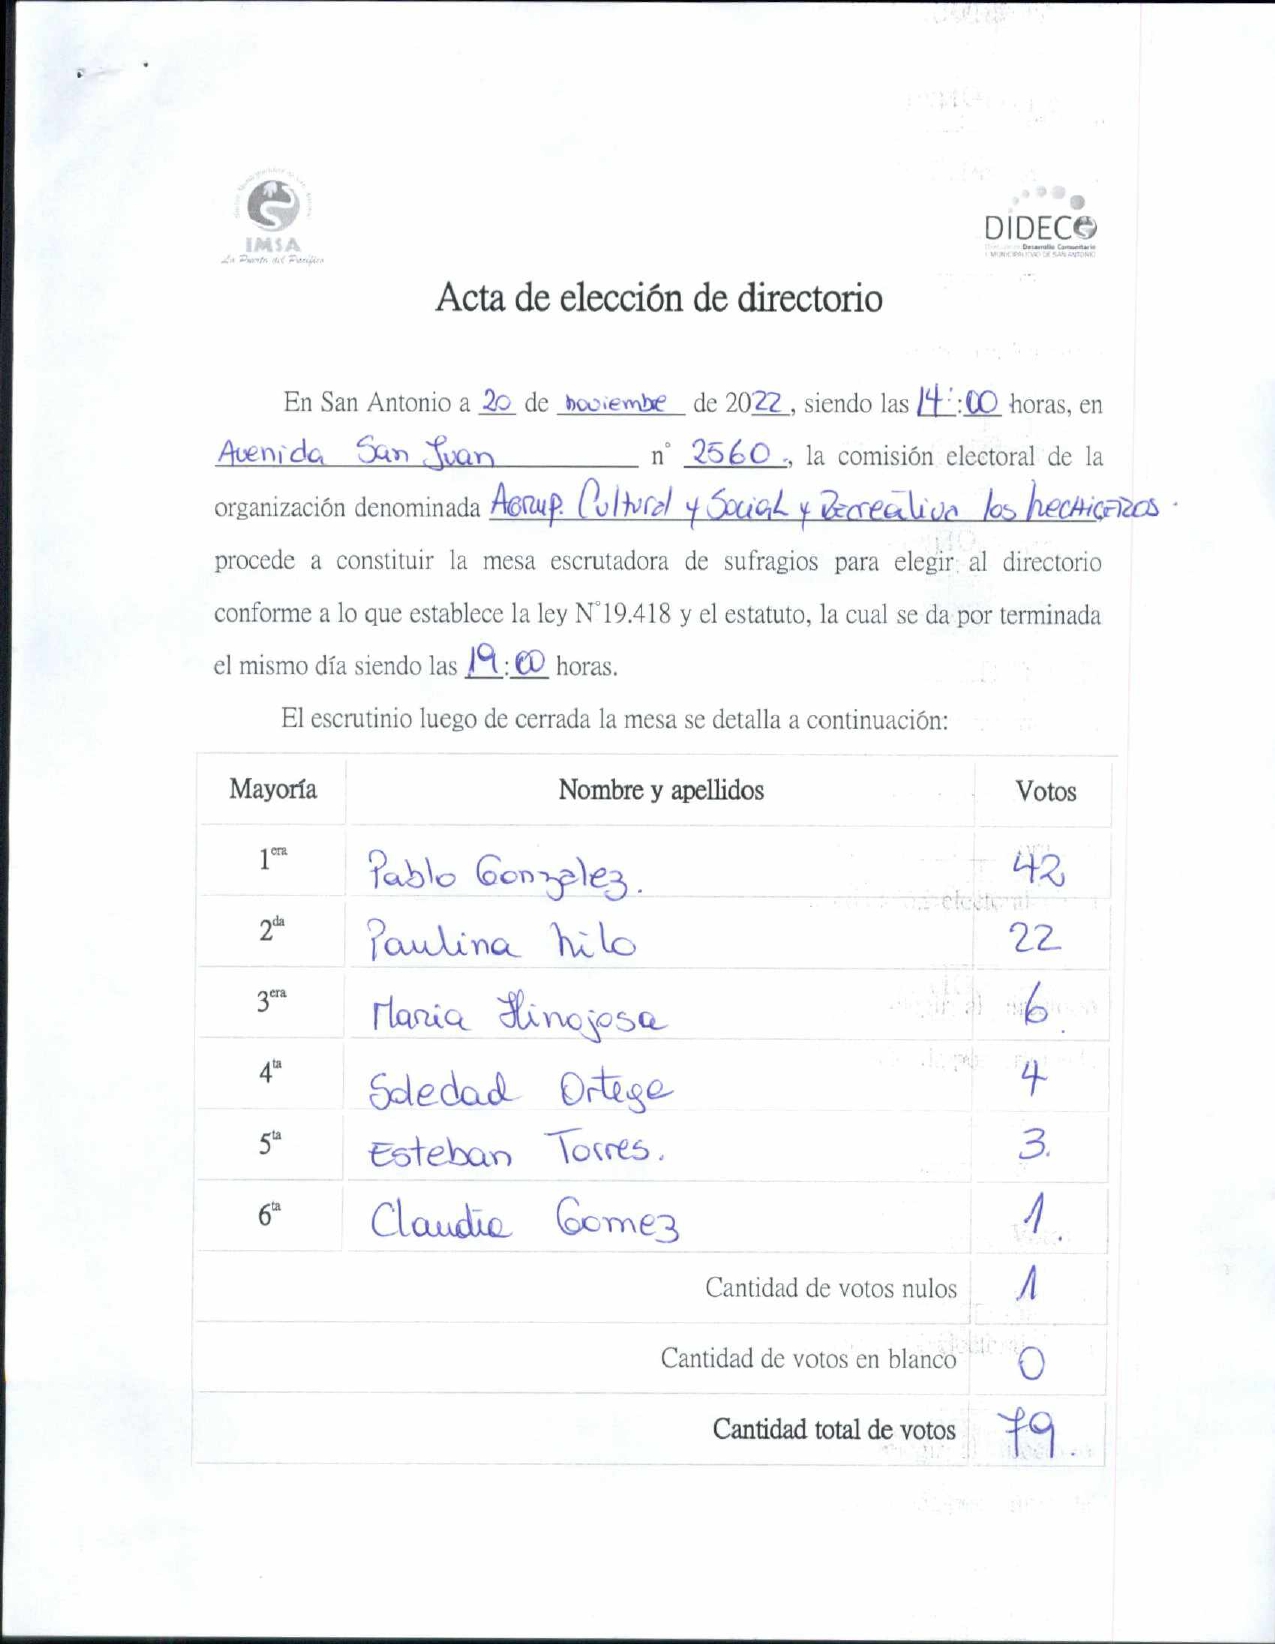 IMSA
La Puerta del Pacífico
DIDECO
Desarrollo Comunitario
I. MUNICIPALIDAD DE SAN ANTONIO
Acta de elección de directorio
En San Antonio a 20 de noviembre de 2022, siendo las 14:00 horas, en
Avenida San Juan n° 2560., la comisión electoral de la
organización denominada Agrup. Cultural y Social y Recreativa los hechiceros.
procede a constituir la mesa escrutadora de sufragios para elegir al directorio
conforme a lo que establece la ley N°19.418 y el estatuto, la cual se da por terminada
el mismo día siendo las 19:00 horas.
El escrutinio luego de cerrada la mesa se detalla a continuación:
Mayoría Nombre y apellidos Votos
1era Pablo Gonzalez. 42
2da Paulina Milo 22
3era Maria Hinojosa 6.
4ta Soledad Ortega 4
5ta Esteban Torres. 3.
6ta Claudia Gomez 1.
Cantidad de votos nulos 1
Cantidad de votos en blanco 0
Cantidad total de votos 79.